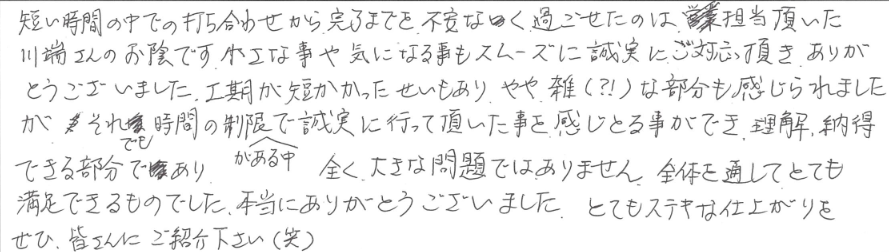 短い時間の中での打ち合わせから完了までを、不安なく過ごせたのは、営業担当頂いた
川端さんのお陰です。小さな事や気になる事もスムーズに誠実にご対応頂き、ありが
とうございました。工期が短かかったせいもあり、やや雑(?!)な部分も感じられました
が、それでも時間の制限がある中で誠実に行って頂いた事を感じとる事ができ、理解、納得
できる部分であり、全く、大きな問題ではありません。全体を通してとても
満足できるものでした。本当にありがとうございました。とてもステキな仕上がりを
ぜひ、皆さんにご紹介下さい(笑)